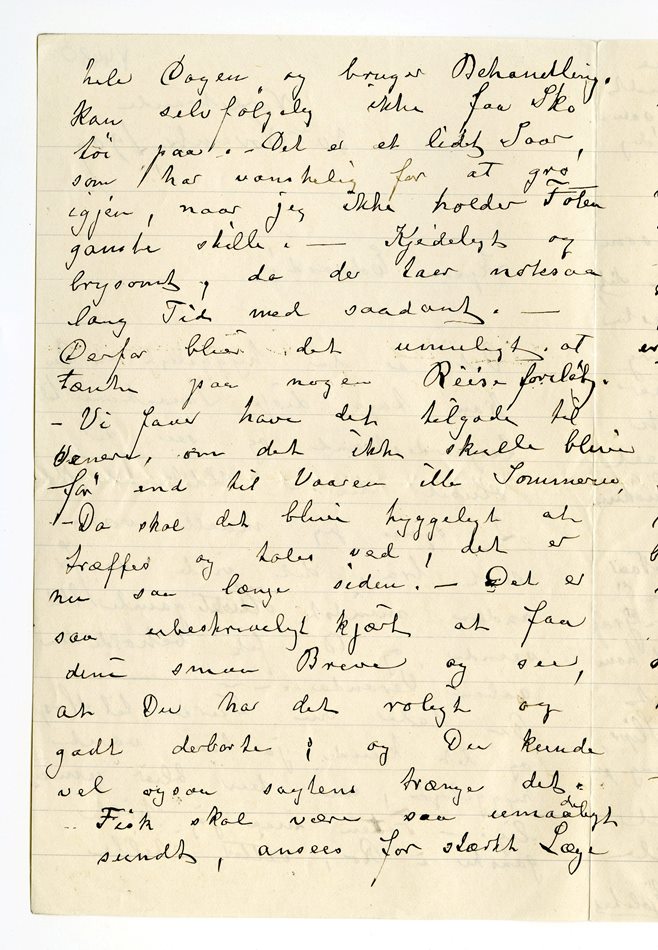 hele Dagen og bruger Behandling.
Kan selvfølgelig ikke faa Sko
töi paa. - Det er et lidet Saar,
som har vanskelig for at gro
igjen, naar jeg ikke holder Foten
ganske stille. — Kjedeligt og
brysomt, da der taer noksaa
lang Tid med saadant. —
Derfor bliver det umuligt at
tænke paa nogen Reise foreløb.
- Vi faaer have det tilgode til
senere, om det ikke skulle blive
før end til Vaaren ille Sommeren,
- Da skal det blive hyggeligt at
træffes og tales ved, det er
nu saa længe siden. — Det er
saa ubeskriveligt kjært at faa
dine smaa Breve og see,
at Du har det roligt og
godt derborte; og Du kunde
vel ogsaa sagtens trænge det.
Fisk skal være saa umaadeligt
sundt, ansees for stærkt Læge